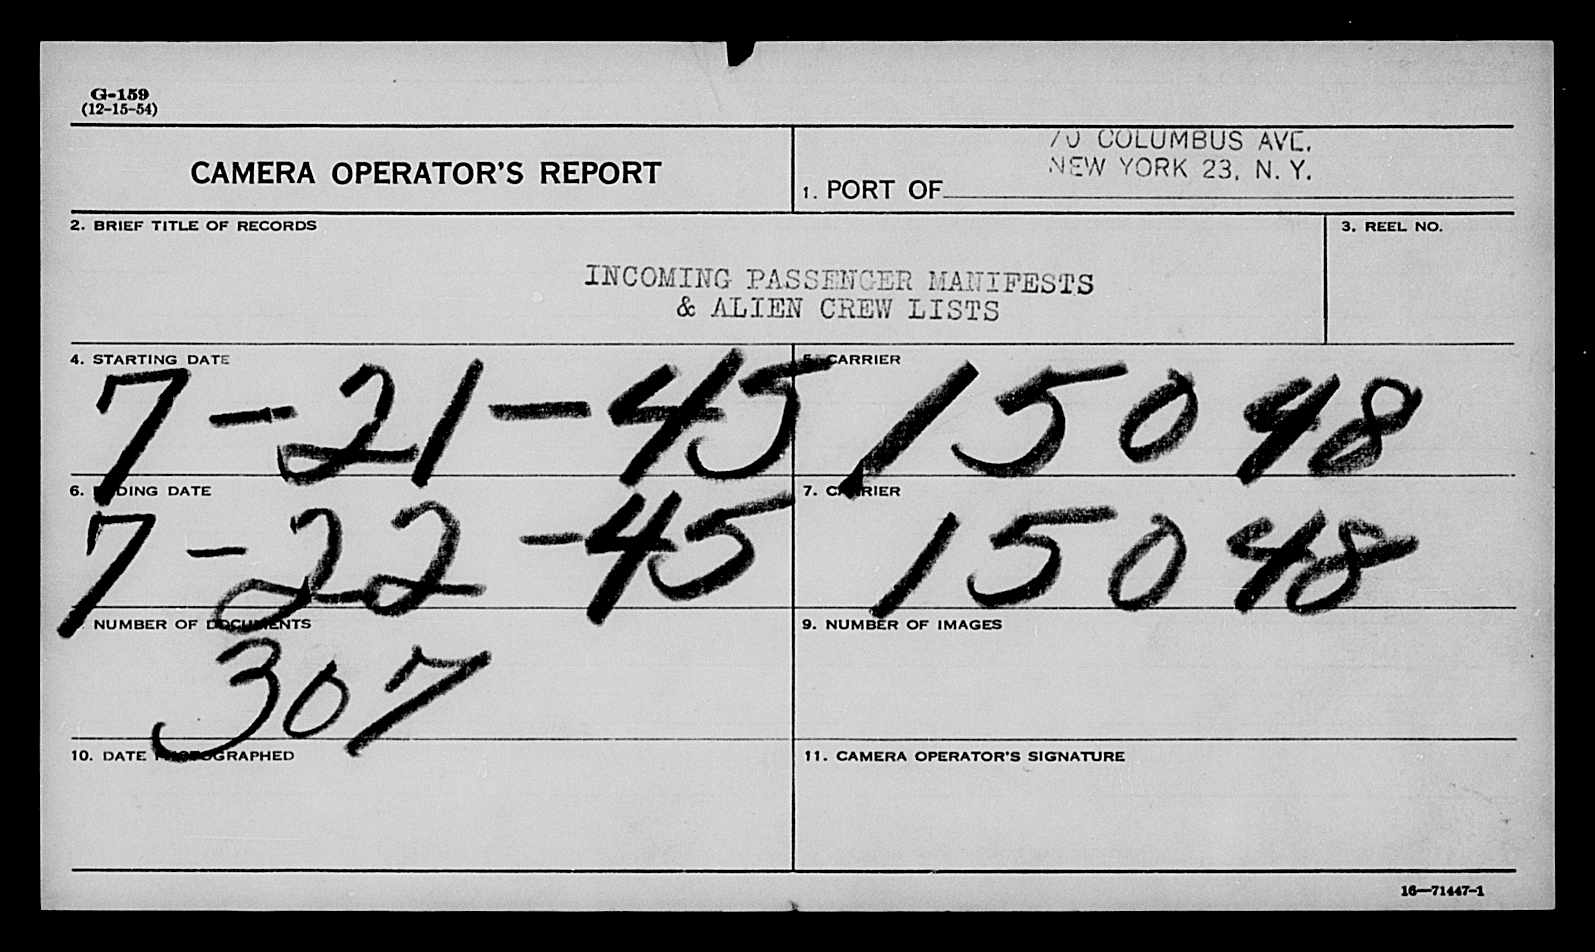 G-159
(12-15-54)
CAMERA OPERATOR'S REPORT
70 COLUMBUS AVE.
NEW YORK 23, N. Y.
1. PORT OF
2. BRIEF TITLE OF RECORDS
3. REEL NO.
INCOMING PASSENGER MANIFESTS
& ALIEN CREW LISTS
4. STARTING DATE
5. CARRIER
7-21-45
15048
6. ENDING DATE
7. CARRIER
7-22-45
15048
NUMBER OF DOCUMENTS
9. NUMBER OF IMAGES
307
10. DATE PHOTOGRAPHED
11. CAMERA OPERATOR'S SIGNATURE
16—71447-1